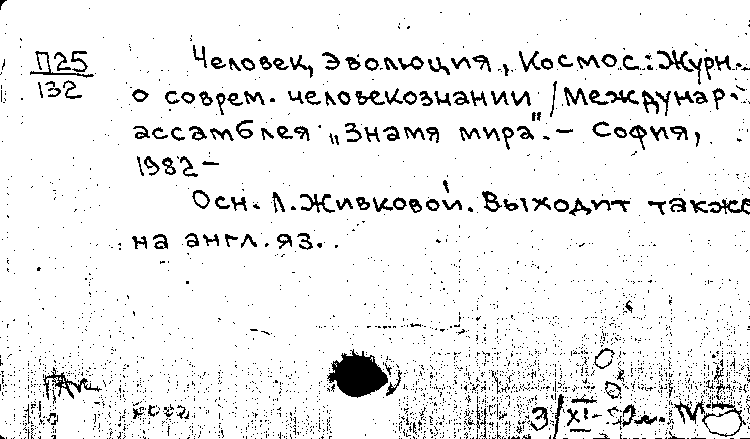 П25
132
Человек, Эволюция, Космос: Журн.
о соврем. человекознании / Междунар.
ассамблея „Знамя мира". – София,
1982 –
Осн. Л. Живковой. Выходит также
на англ. яз.